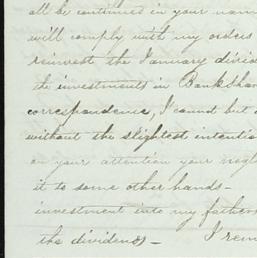 all be continued in your nam
will comply with my orders
reinvest the January divid
the investments in Bank Shar
correspondence, I cannot but
without the slightest intentio
on your attention your negl
it to some other hands –
investment into my fathers
the dividends – I rem